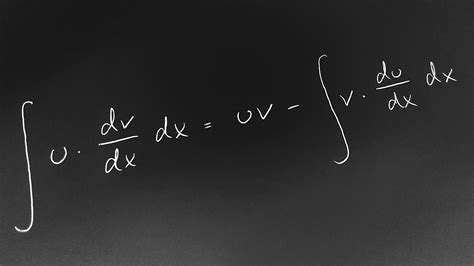 ∫ u · dv/dx dx = uv - ∫ v · du/dx dx